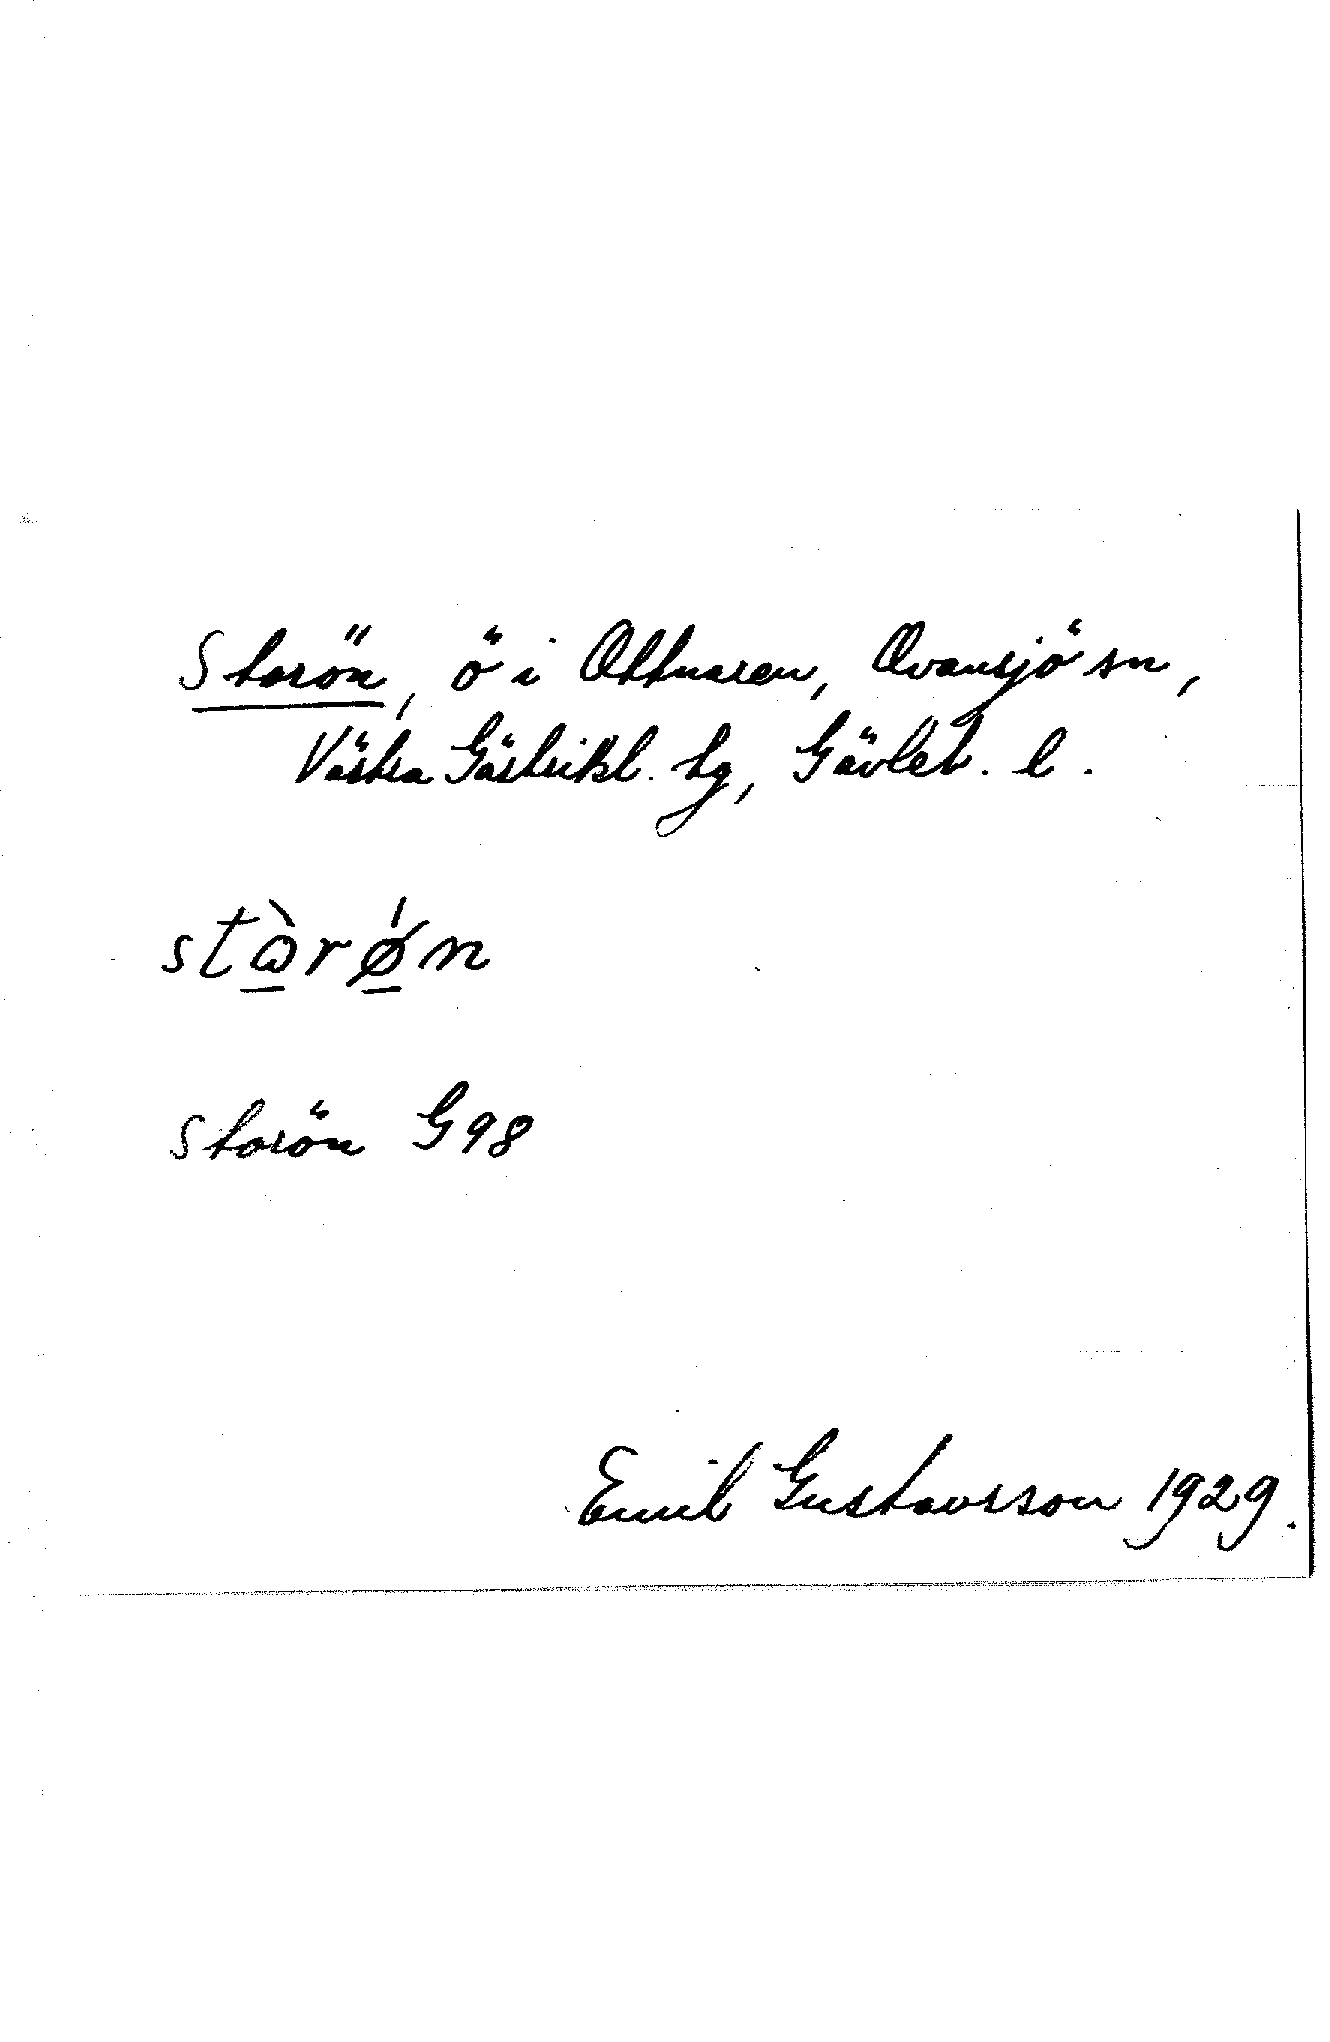 Storön, ö i Ottnaren, Ovansjö sn,
Västra Gästrikl. tg, Gävleb. l.
stɷ̲̀rǿ̲n
Storön G98
Emil Gustavsson 1929.